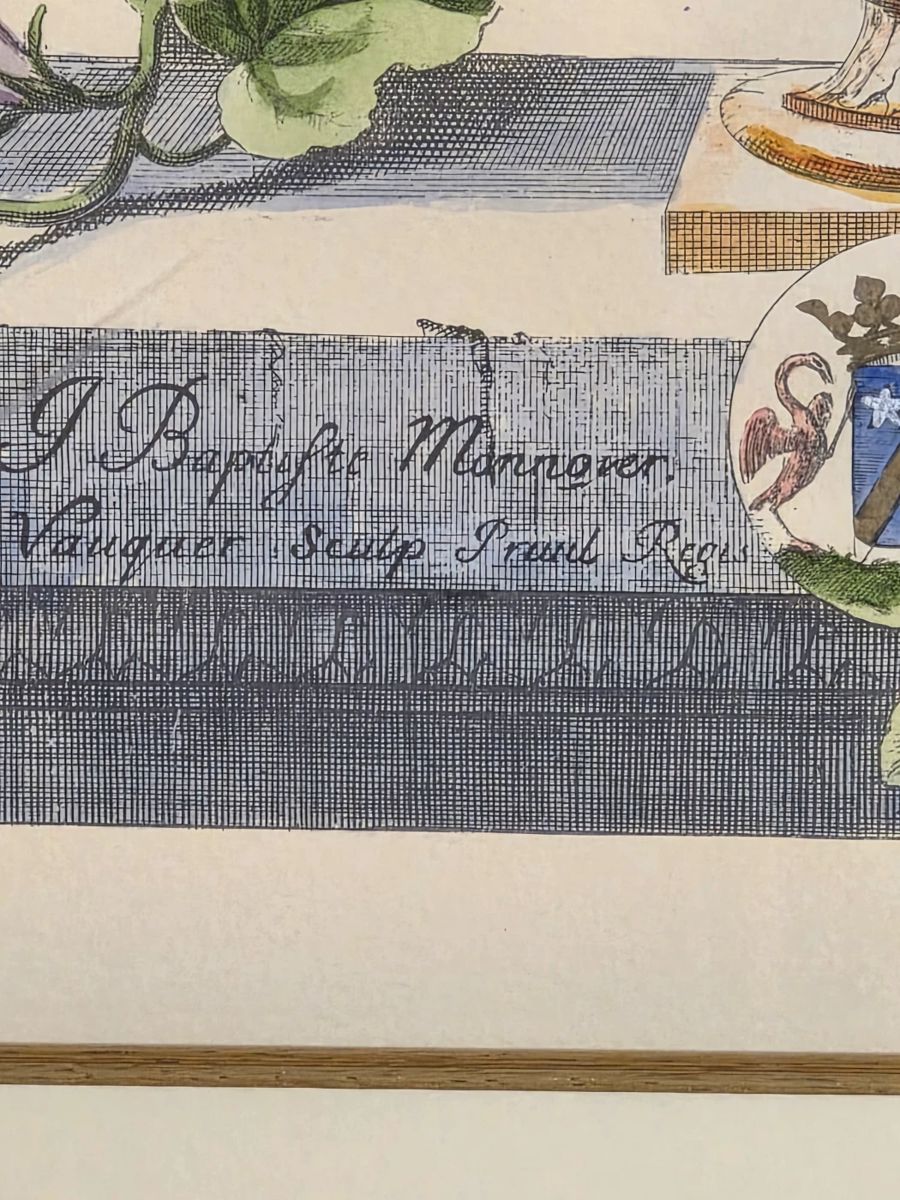 J Baptiste Monnoyer.
Vauquer Sculp Privil Regis